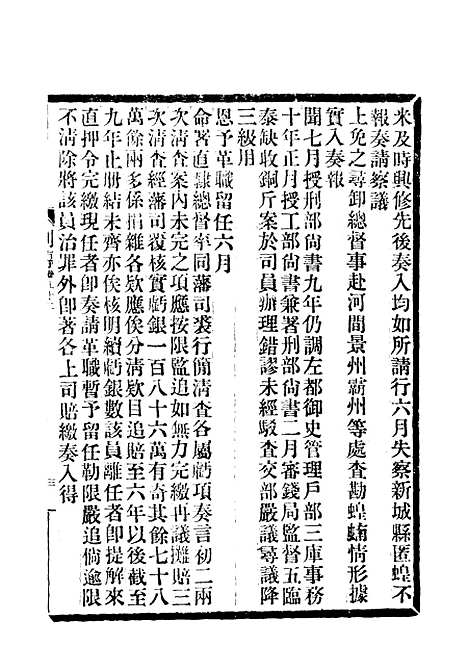 米及時興修先後奏入均如所請行六月失察新城縣匿蝗不
報奏請察議
上免之尋卸總督事赴河間景州霸州等處查勘蝗蝻情形據
實入奏報
聞七月授刑部尙書九年仍調左都御史管理戸部三庫事務
十年正月授工部尙書兼署刑部尙書二月審錢局監督五臨
泰缺收銅斤案於司員辦理錯謬未經駁查交部嚴議尋議降
三級用
恩予革職留任六月
命署直隸總督率同藩司裘行簡淸查各屬虧項奏言初二兩
次淸查案內未完之項應按限監追如無力完繳再議攤賠三
次淸查經藩司覆核實虧銀一百八十六萬有奇其餘七十八
萬餘兩多係捐雜各欵應俟分淸欵目追賠至六年以後截至
九年止册結未齊亦俟核明續虧銀數該員離任者卽提解來
直押令完繳現任者卽奏請革職暫予留任勒限嚴追倘逾限
不淸除將該員治罪外卽著各上司賠繳奏入得